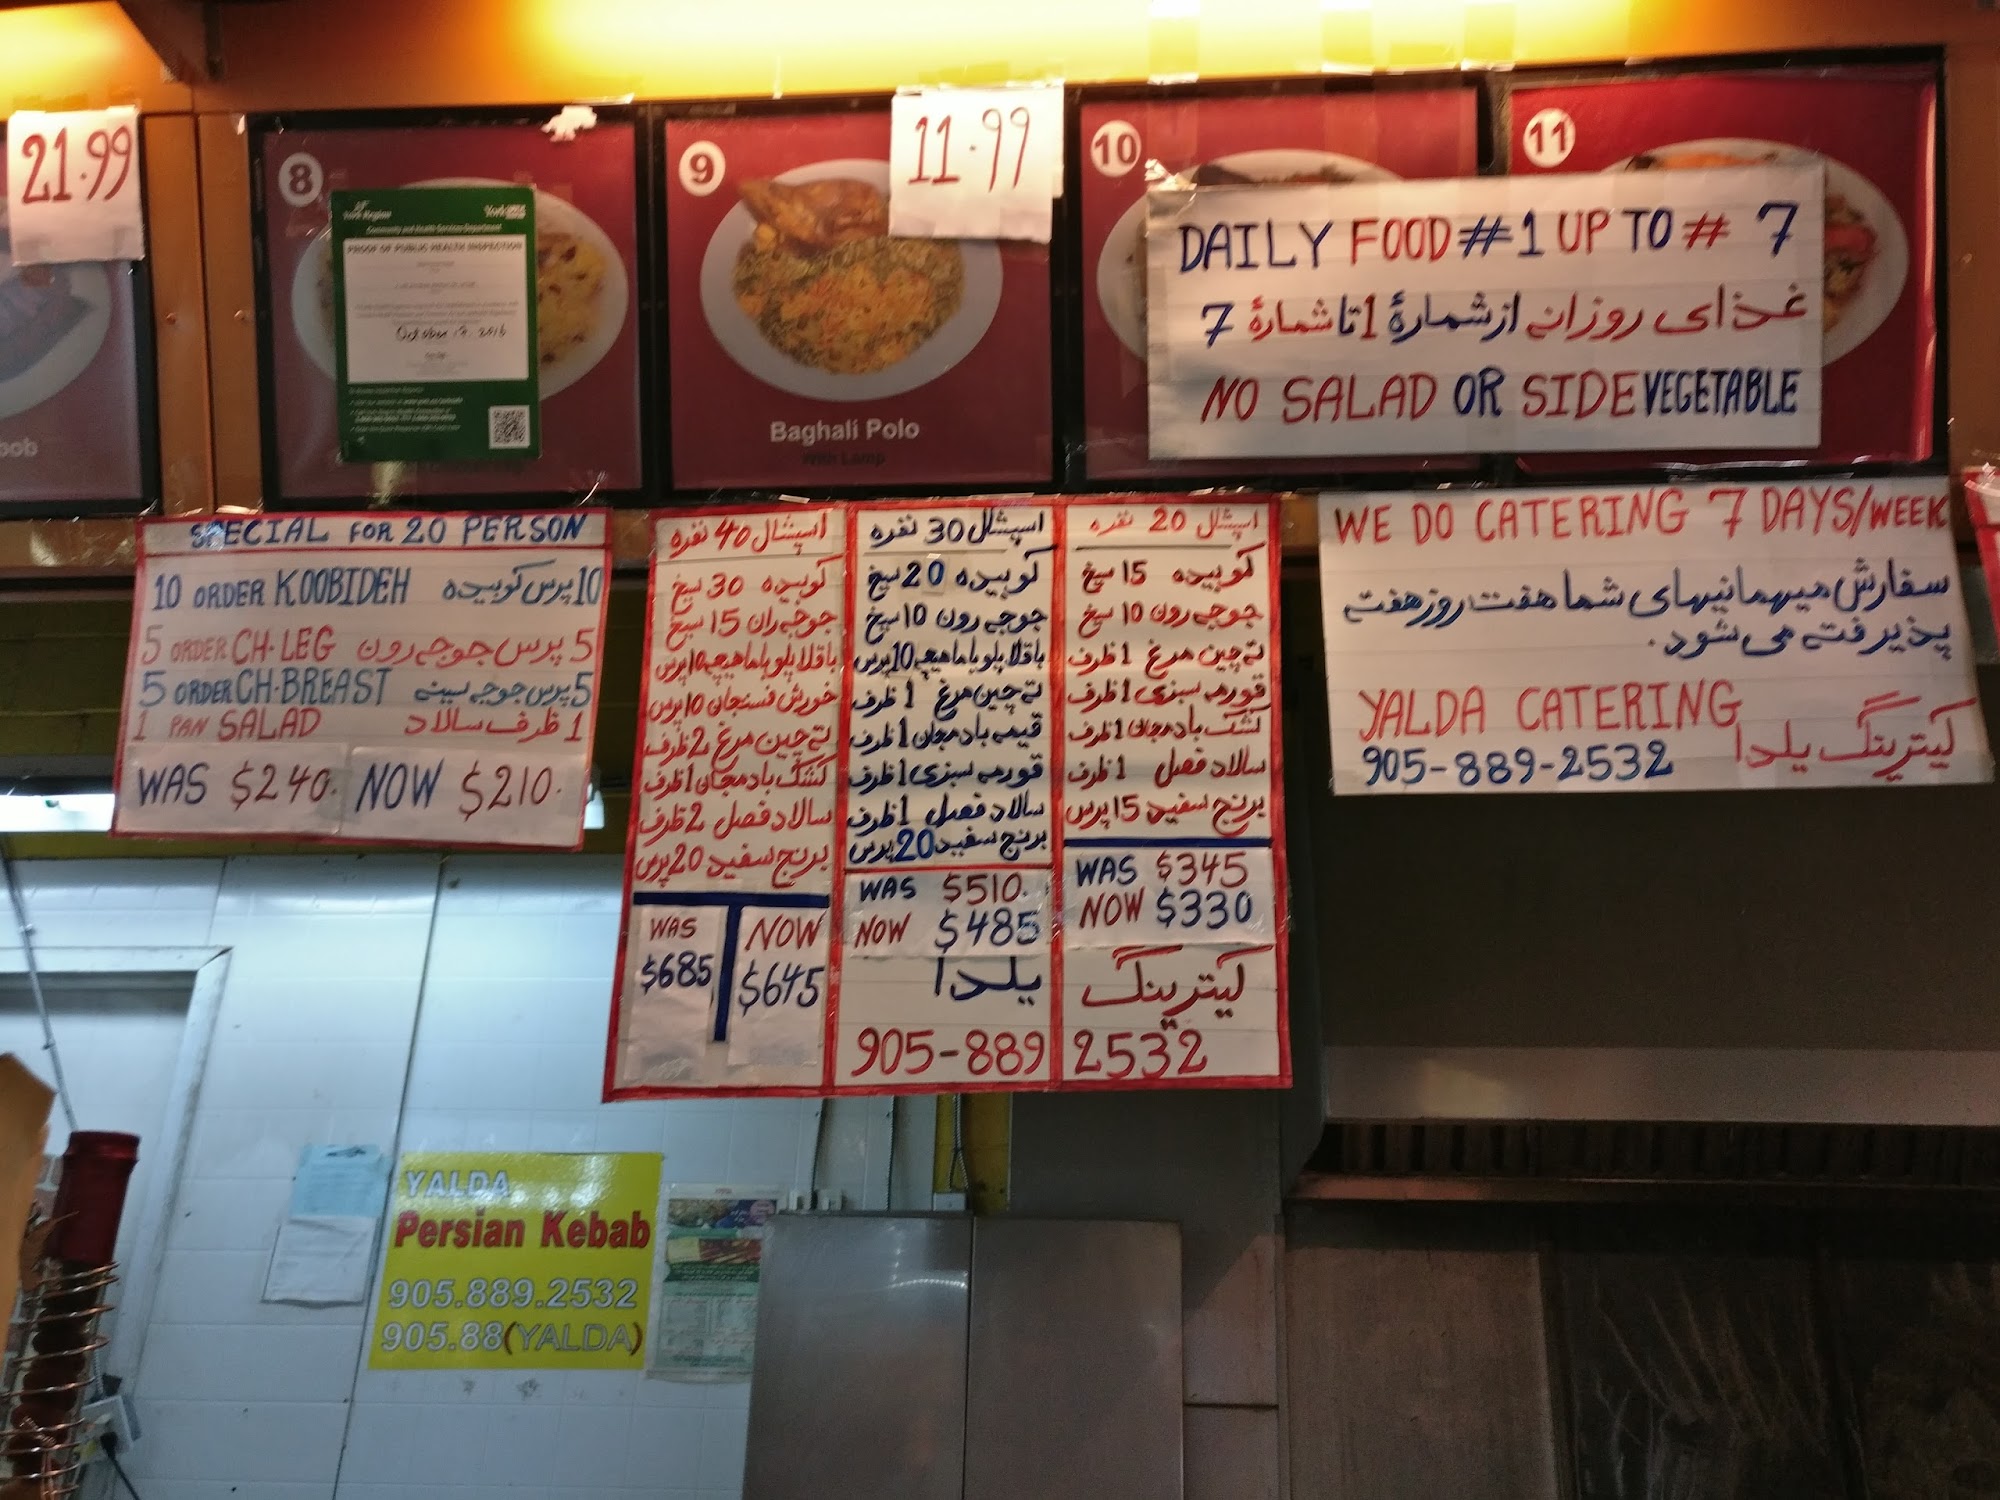 21.99
8
York Region
Community and Health Services Department
PROOF OF PUBLIC HEALTH INSPECTION
October 17, 2016
9
11.99
Baghali Polo
With Lamp
10
11
DAILY FOOD #1 UP TO # 7
غذای روزانه از شمارهٔ 1 تا شمارهٔ 7
NO SALAD OR SIDE VEGETABLE
SPECIAL FOR 20 PERSON
10 ORDER KOOBIDEH 10 پرس کوبیده
5 ORDER CH.LEG 5 پرس جوجه رون
5 ORDER CH.BREAST 5 پرس جوجه سینه
1 PAN SALAD 1 ظرف سالاد
WAS $240. NOW $210.
اسپشال 40 نفره
کوبیده 30 سیخ
جوجه ران 15 سیخ
باقلا پلو با ماهیچه 10 پرس
خورش فسنجان 10 پرس
ته چین مرغ 2 ظرف
کشک بادمجان 1 ظرف
سالاد فصل 2 ظرف
برنج سفید 20 پرس
WAS
$685
NOW
$645
اسپشال 30 نفره
کوبیده 20 سیخ
جوجه رون 10 سیخ
باقلا پلو با ماهیچه 10 پرس
ته چین مرغ 1 ظرف
قیمه بادمجان 1 ظرف
قورمه سبزی 1 ظرف
سالاد فصل 1 ظرف
برنج سفید 20 پرس
WAS $510.
NOW $485
اسپشال 20 نفره
کوبیده 15 سیخ
جوجه رون 10 سیخ
ته چین مرغ 1 ظرف
قورمه سبزی 1 ظرف
کشک بادمجان 1 ظرف
سالاد فصل 1 ظرف
برنج سفید 15 پرس
WAS $345
NOW $330
کیترینگ یلدا
905-889 2532
WE DO CATERING 7 DAYS/WEEK
سفارش میهمانیهای شما هفت روز هفته
پذیرفته می شود.
YALDA CATERING کیترینگ یلدا
905-889-2532
YALDA
Persian Kebab
905.889.2532
905.88(YALDA)